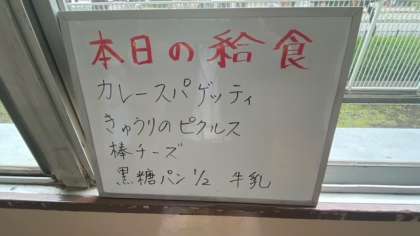 本日の給食
カレースパゲッティ
きゅうりのピクルス
棒チーズ
黒糖パン1/2 牛乳